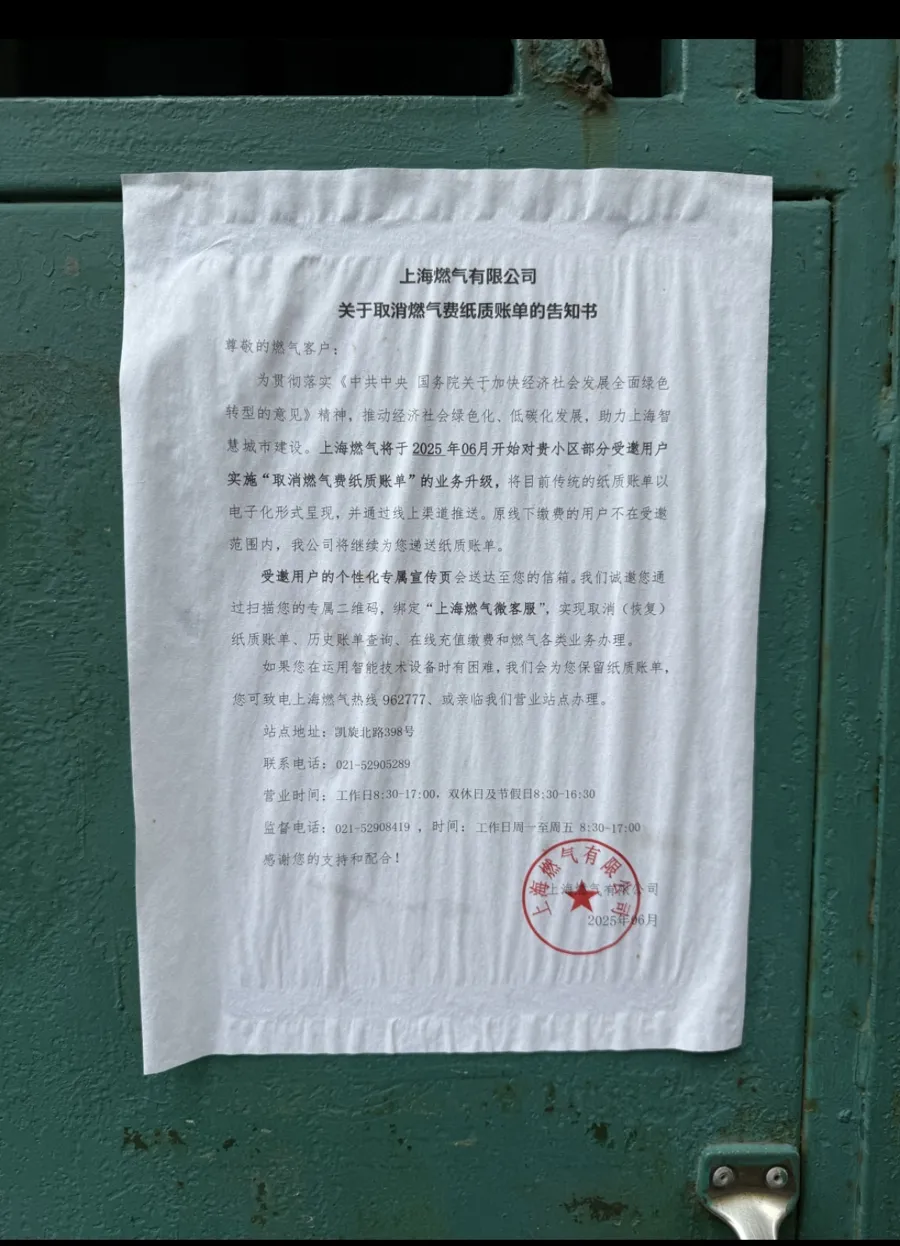 上海燃气有限公司
关于取消燃气费纸质账单的告知书
尊敬的燃气客户：
为贯彻落实《中共中央 国务院关于加快经济社会发展全面绿色
转型的意见》精神，推动经济社会绿色化、低碳化发展，助力上海智
慧城市建设。上海燃气将于 2025 年06月开始对贵小区部分受邀用户
实施“取消燃气费纸质账单”的业务升级，将目前传统的纸质账单以
电子化形式呈现，并通过线上渠道推送。原线下缴费的用户不在受邀
范围内，我公司将继续为您递送纸质账单。
受邀用户的个性化专属宣传页会送达至您的信箱。我们诚邀您通
过扫描您的专属二维码，绑定“上海燃气微客服”，实现取消（恢复）
纸质账单、历史账单查询、在线充值缴费和燃气各类业务办理。
如果您在运用智能技术设备时有困难，我们会为您保留纸质账单，
您可致电上海燃气热线 962777、或亲临我们营业站点办理。
站点地址：凯旋北路398号
联系电话：021-52905289
营业时间：工作日8:30-17:00，双休日及节假日8:30-16:30
监督电话：021-52908419 ，时间：工作日周一至周五 8:30-17:00
感谢您的支持和配合！
上海燃气有限公司
2025年06月
上海燃气有限公司